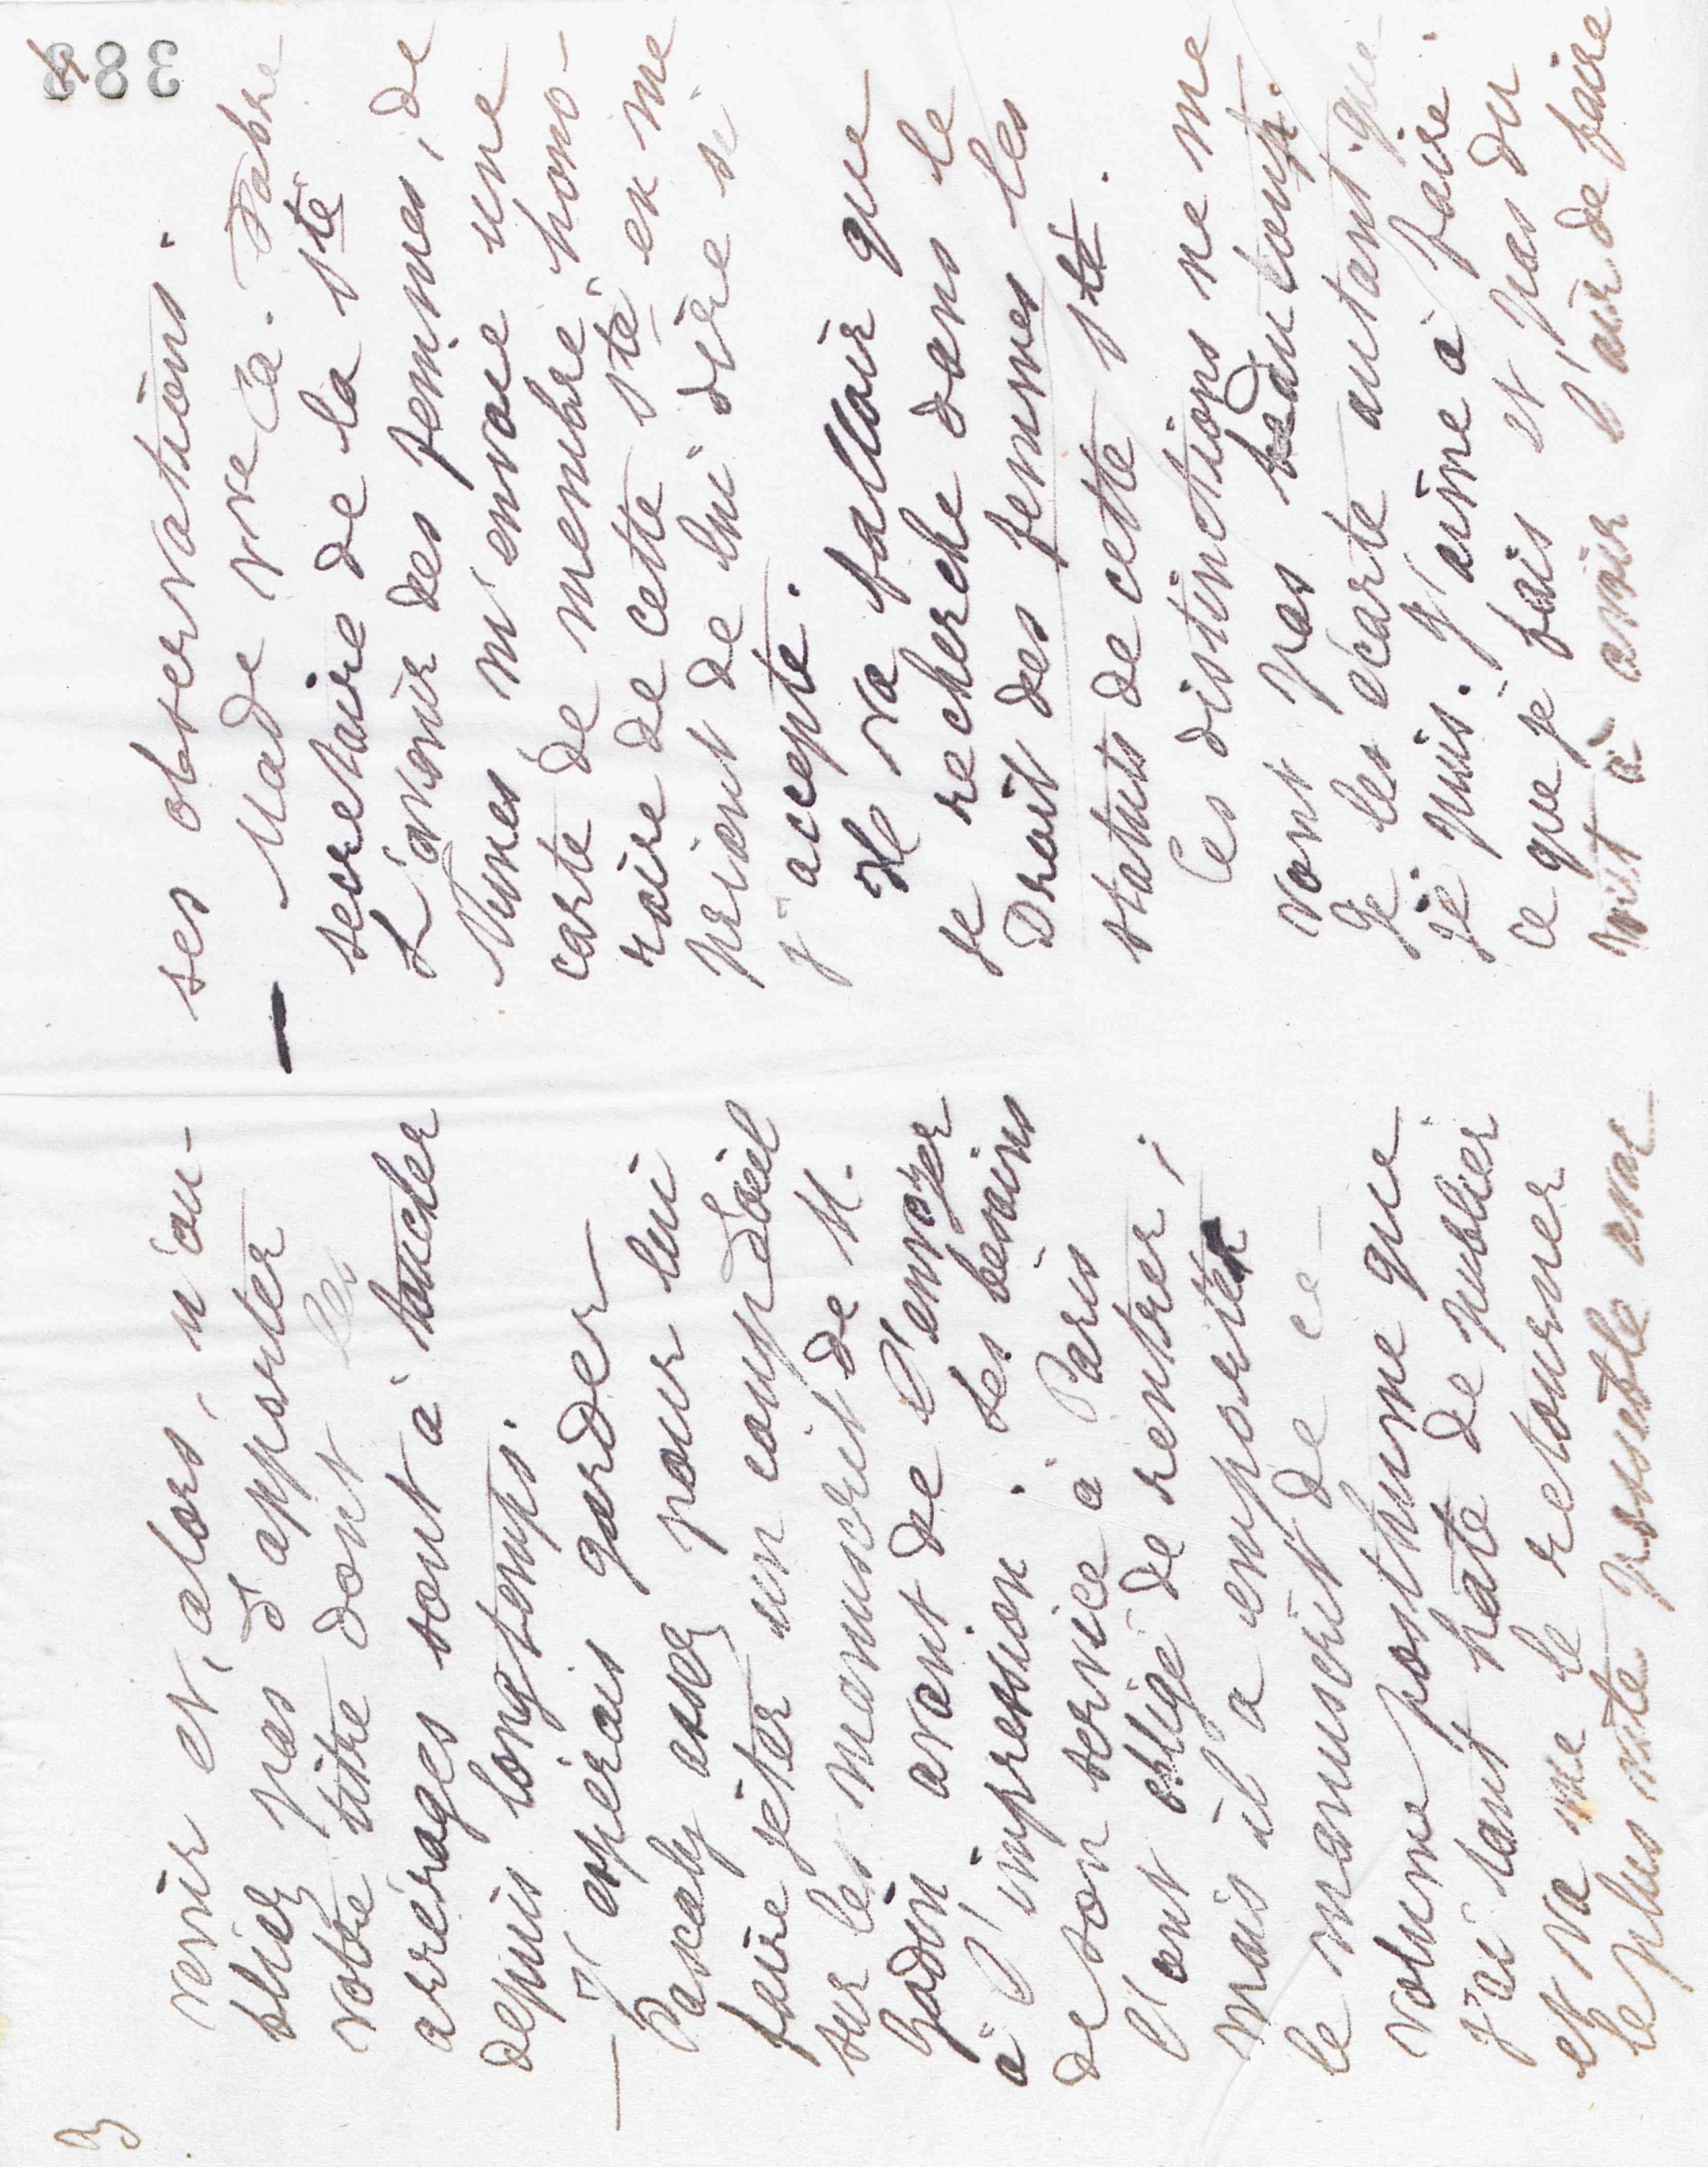 3
venir et, alors, n'ou-
bliez pas d'apporter
votre titre dont les
arrérages sont à toucher
depuis longtemps.
— J'espérais garder
Pascaly assez pour lui
faire jeter un coup d'œil
sur les manuscrit de M.
Godin avant de l'envoyer
à l'impression. Les besoins
de son service à Paris
l'ont obligé de rentrer ;
mais il a emporter
le manuscrit de ce
volume posthume que
j'ai tant hâte de publier
et va me le retourner
le plus vite possible avec
383
4
ses observations.
— Made Vve Ca. Fabre
secrétaire de la sté
L'avenir des femmes, de
Nimes m'envoie une
carte de membre hono-
raire de cette sté en me
priant de lui dire si
j'accepte.
Il va falloir que
je recherche dans le
Droit des femmes les
statuts de cette sté.
Ces distinctions ne me
vont pas beaucoup.
Je les écarte autant que
je puis. J'aime à faire
ce que je fais et pas du
tout à avoir l'air de faire